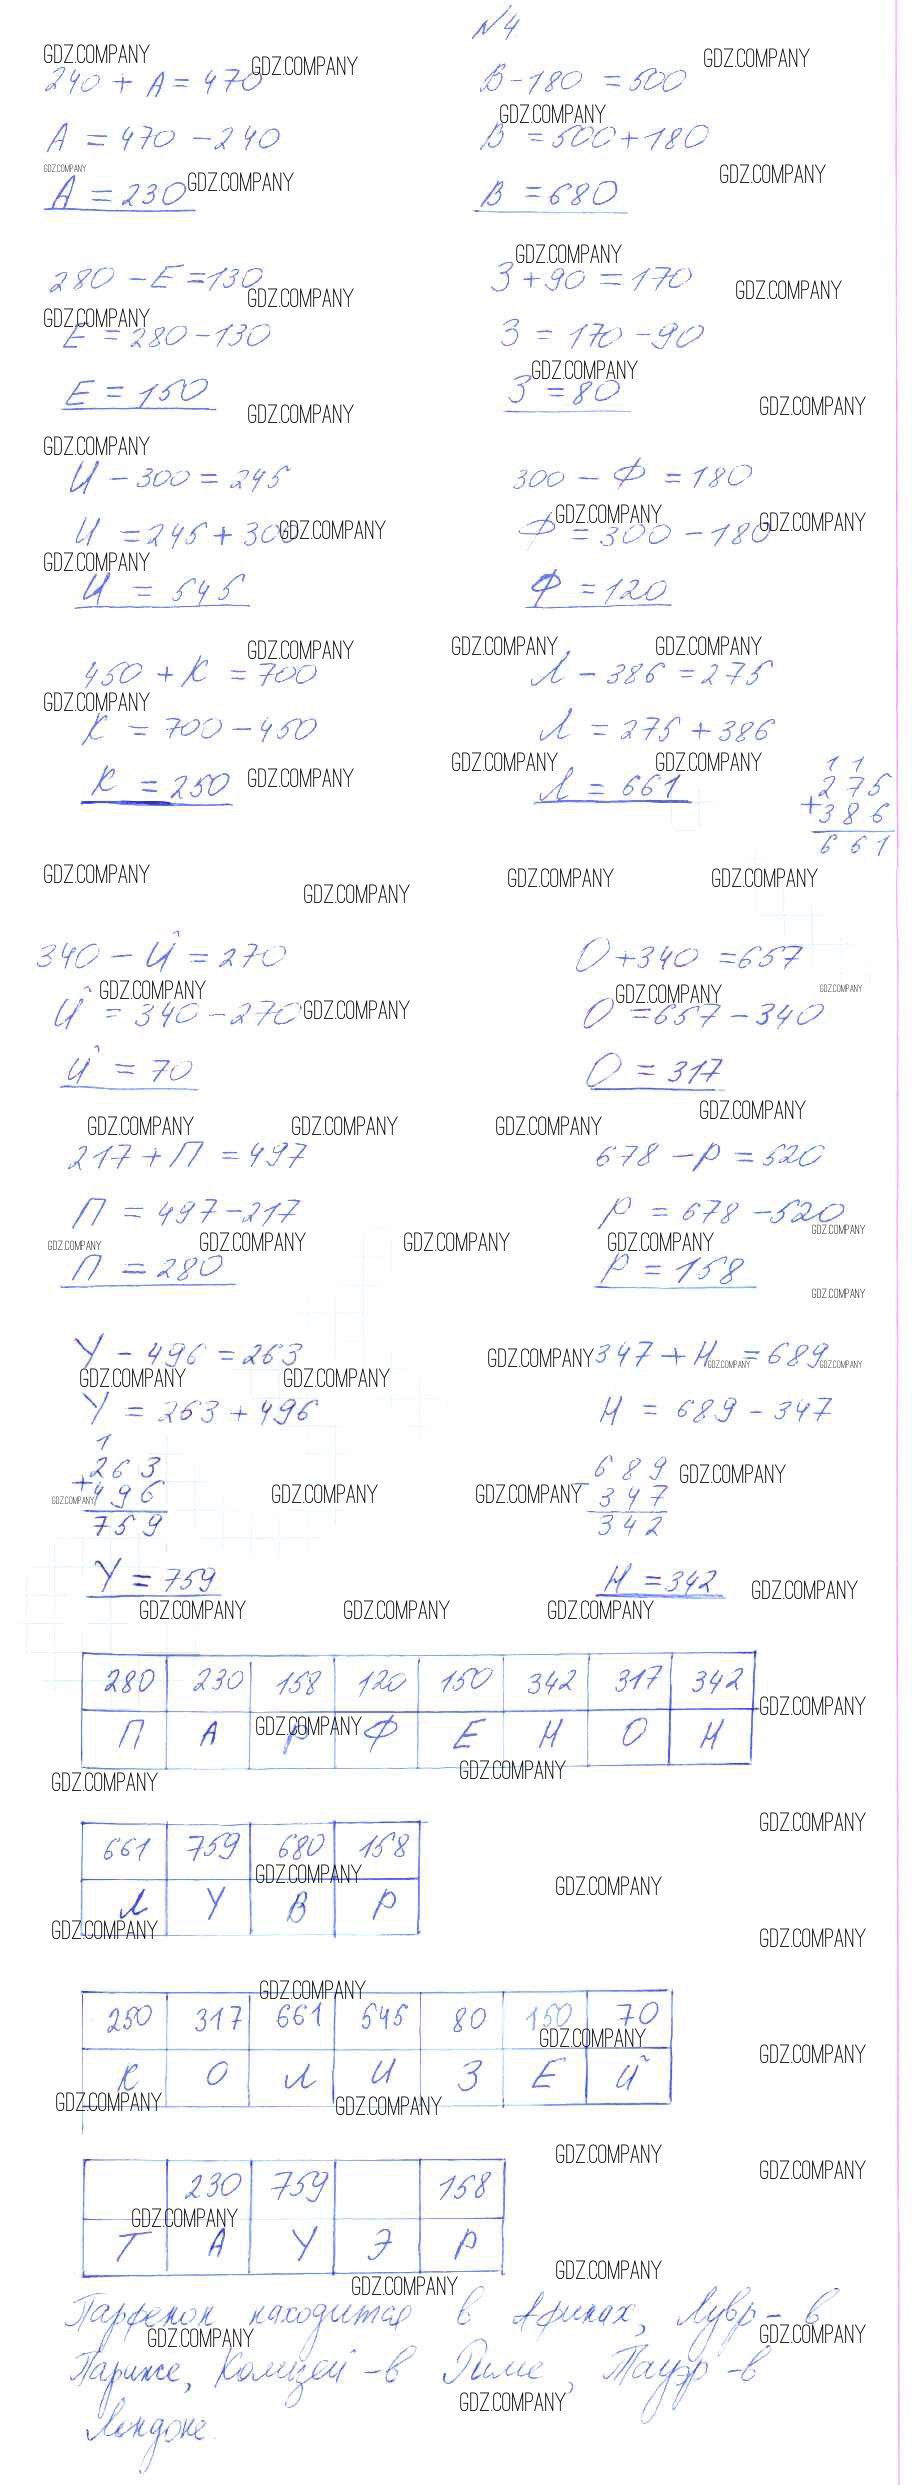 N4
240 + А = 470
В - 180 = 500
А = 470 - 240
В = 500 + 180
А = 230
В = 680
280 - Е = 130
З + 90 = 170
Е = 280 - 130
З = 170 - 90
Е = 150
З = 80
И - 300 = 245
300 - Ф = 180
И = 245 + 300
Ф = 300 - 180
И = 545
Ф = 120
450 + К = 700
Л - 386 = 275
К = 700 - 450
Л = 275 + 386
К = 250
Л = 661
1 1
275
+386
661
340 - Й = 270
О + 340 = 657
Й = 340 - 270
О = 657 - 340
Й = 70
О = 317
217 + П = 497
678 - Р = 520
П = 497 - 217
Р = 678 - 520
П = 280
Р = 158
У - 496 = 263
347 + Н = 689
У = 263 + 496
Н = 689 - 347
1
263
+496
759
689
- 347
342
У = 759
Н = 342
280 230 158 120 150 342 317 342
П А Р Ф Е Н О Н
661 759 680 158
Л У В Р
250 317 661 545 80 150 70
К О Л И З Е Й
230 759 158
Т А У Э Р
Парфенон находится в Афинах, Лувр - в
Париже, Колизей - в Риме, Тауэр - в
Лондоне.
GDZ.COMPANY